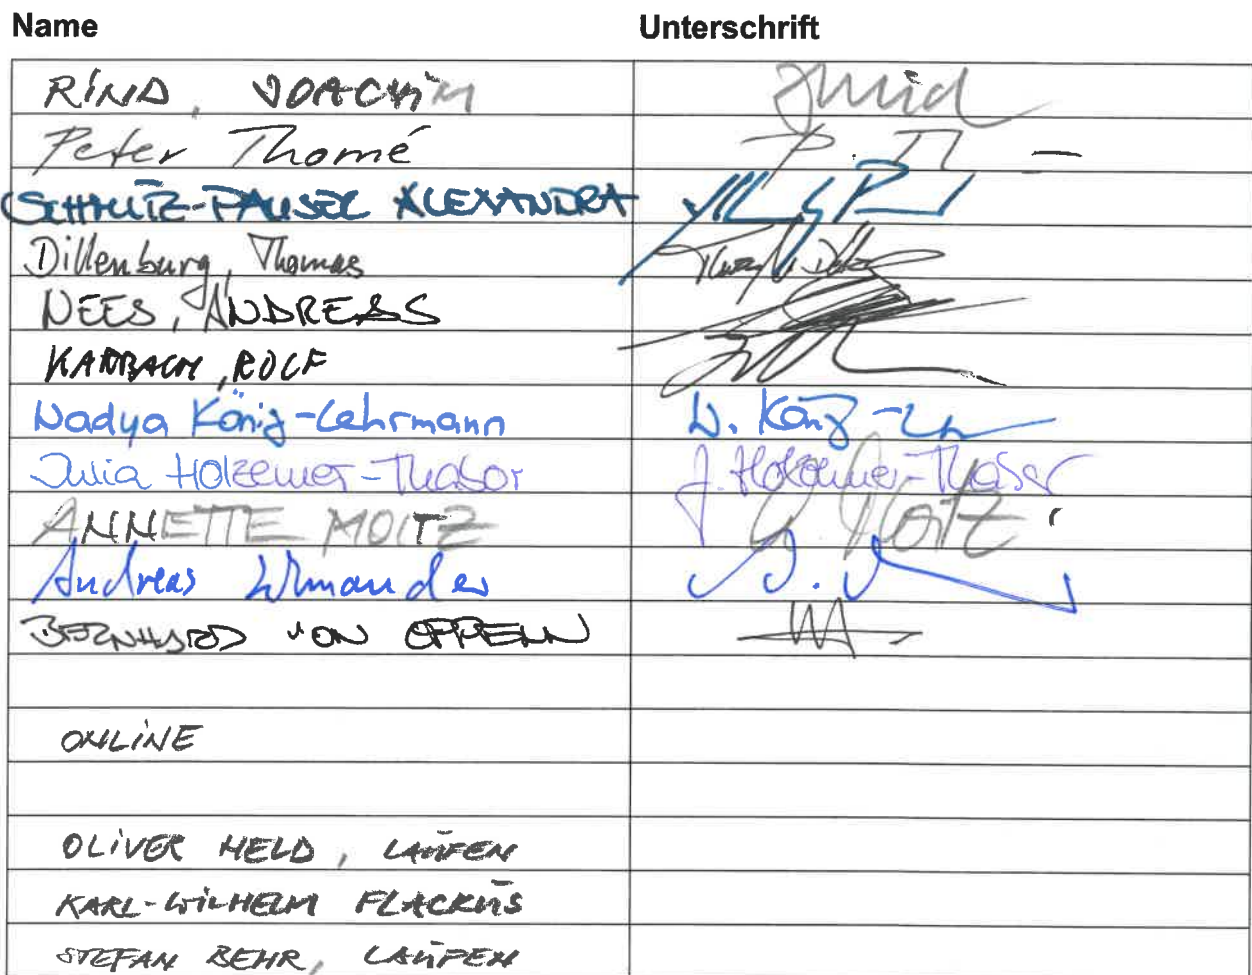 Name Unterschrift
RIND, JOACHIM
Peter Thomé P. Th
SCHMUTZ-PAUSEL ALEXANDRA
Dillenburg, Thomas
NEES, ANDREAS
KARBACH, ROLF
Nadya König-Lehrmann N. König-L
Julia Holzemer-Thabor J. Holzemer-Thabor
ANNETTE MOITZ A. Moitz
Andreas
BERNHARD VON OPPELN
ONLINE
OLIVER HELD, LAUFEN
KARL-WILHELM FLACKUS
STEFAN BEHR, LAUFEN